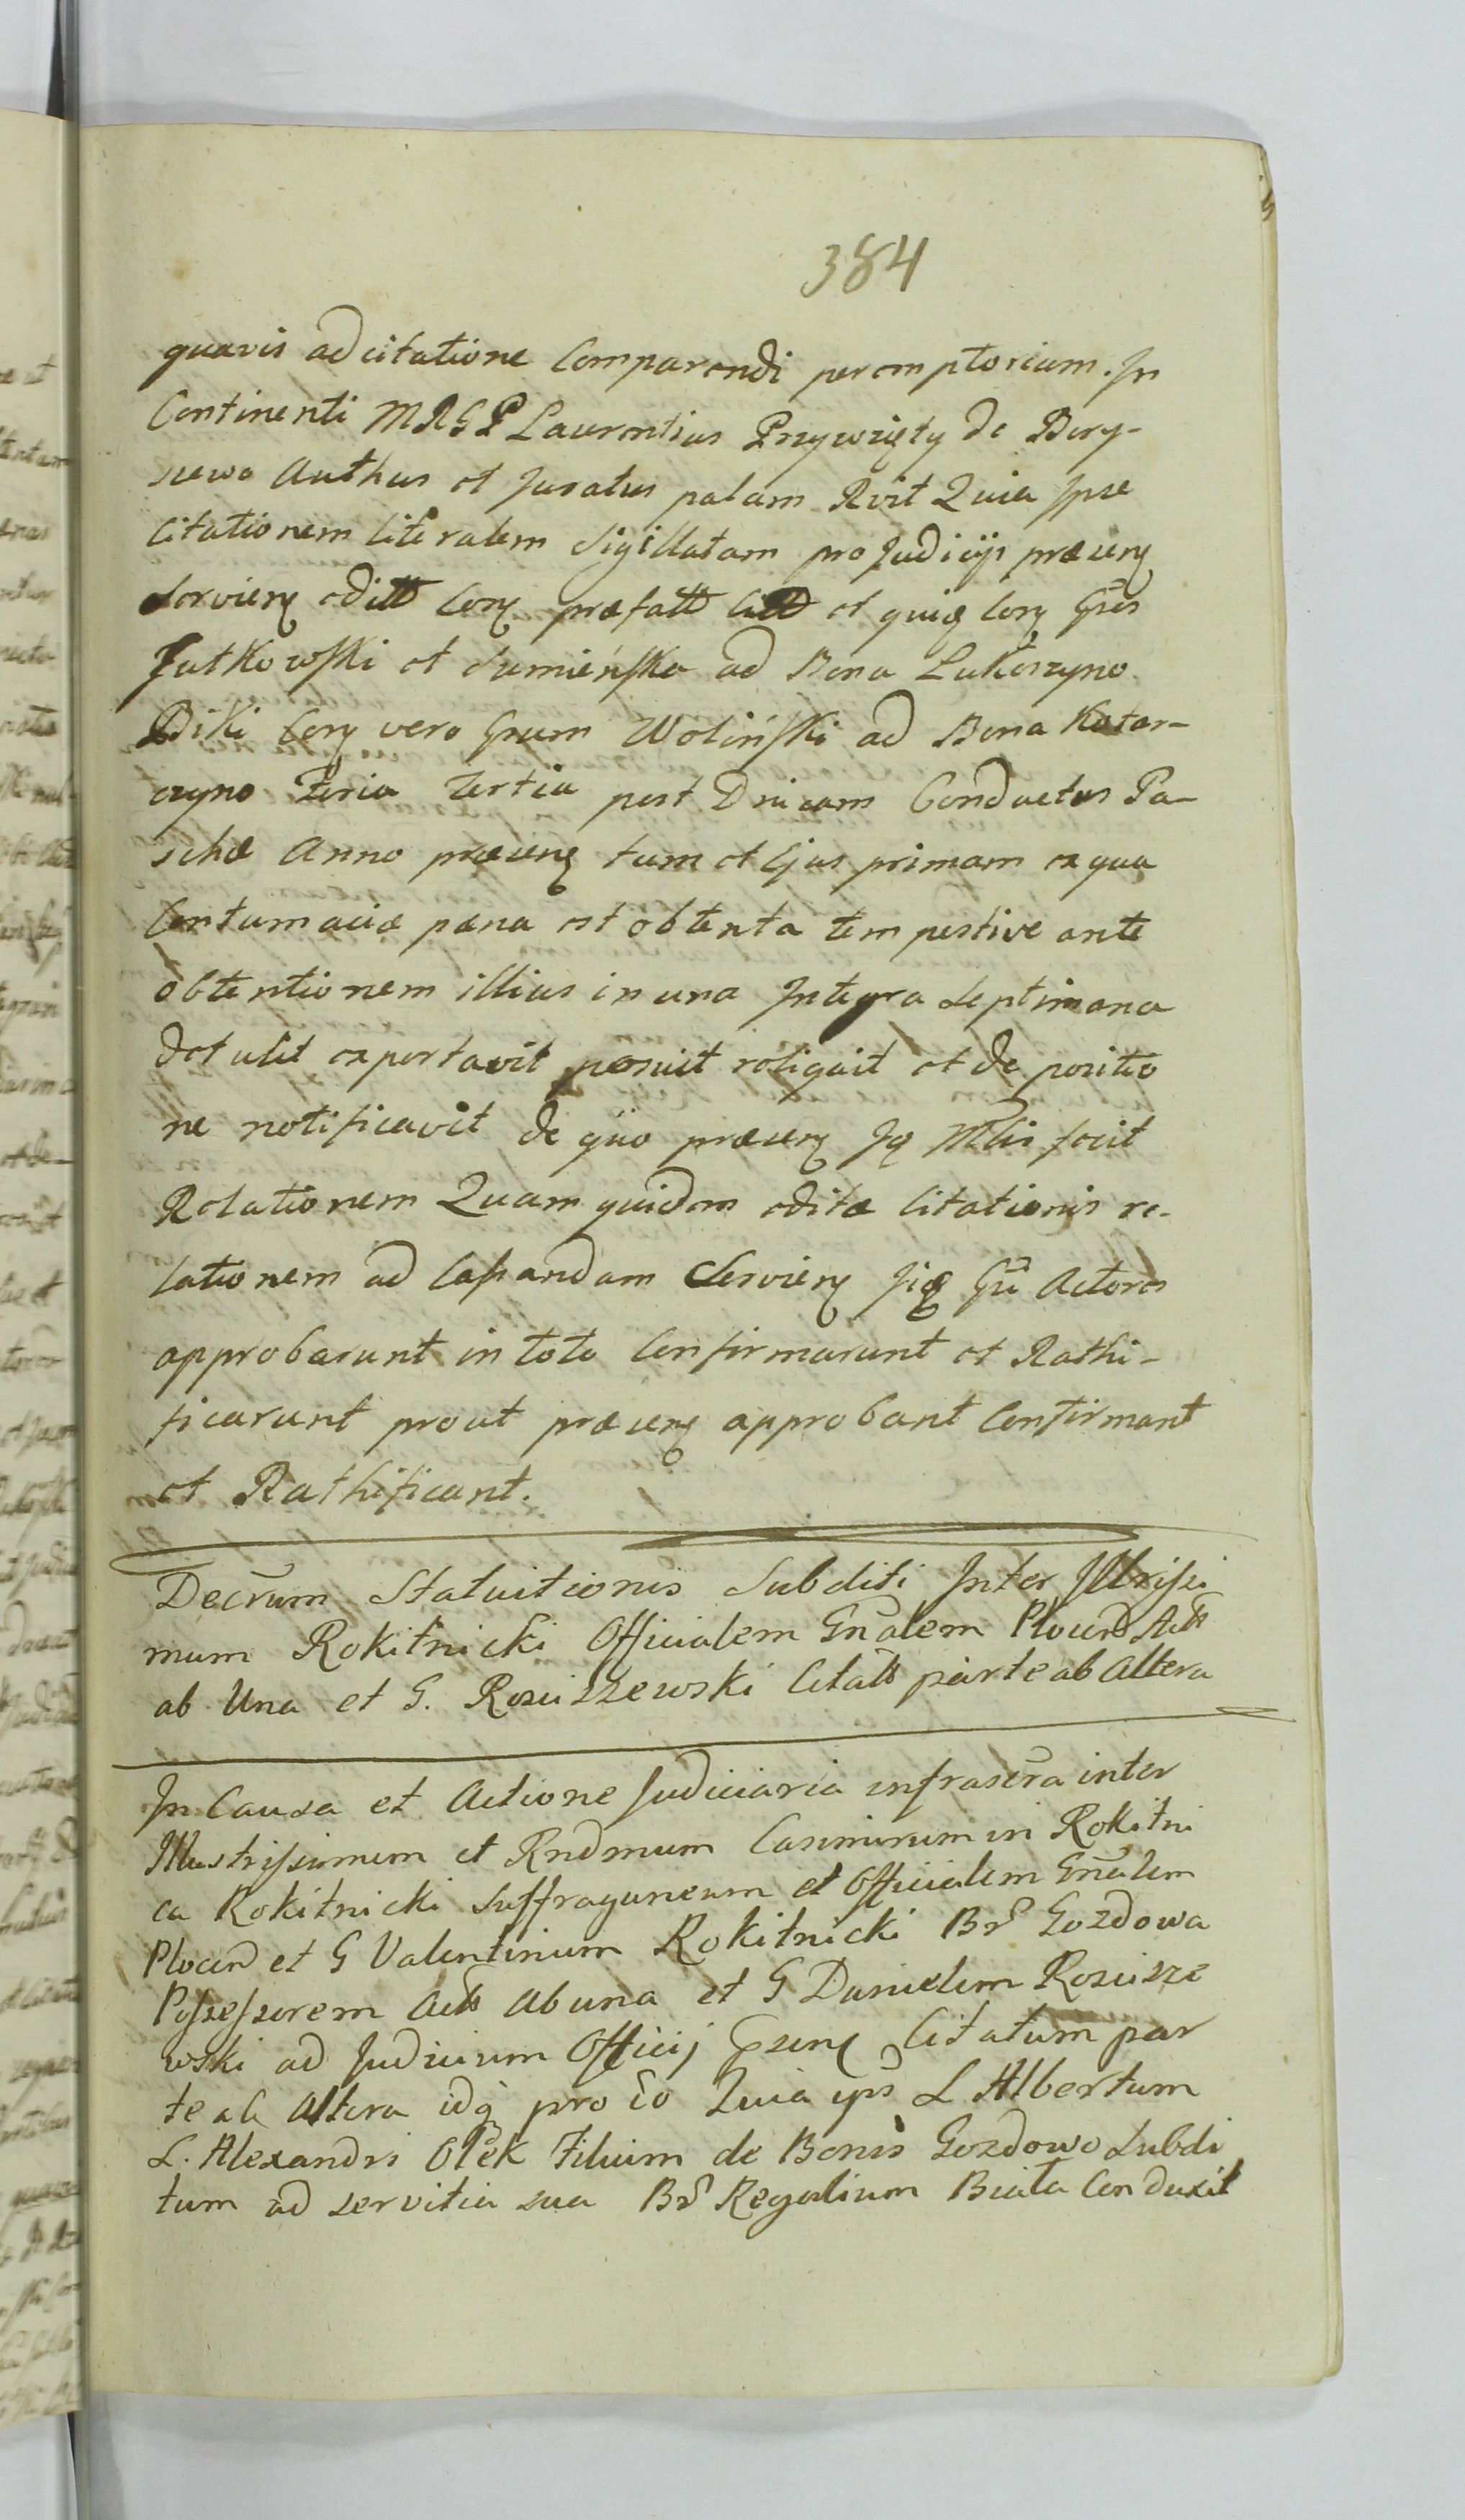 384
quavis ad citatione Comparendi peremptorium. In
Continenti MRGP Laurentius Przywzięty de Bory-
szewo Authus et Juratus palam Rvit Quia Ipse
Citationem literalem Sigillatam pro Judicijs præsenӡ
servienӡ editt Corӡ præfatt Citt et quiꝫ Corӡ Gsos
Jutkowski et Sumieńska ad Bona Lukoszyno
Biki Corӡ vero Gsum Woliński ad Bona Kotar-
czyno Feria Tertia post Dnicam Conductus Pa-
schæ Anno præsenӡ tum et Ejus primam ex qua
Contumaciæ pæna est obtenta tempestive ante
obtentionem illius in una Integra Septimana
detulit exportavit posuit reliquit et de positio
ne notificavit de quo præsenӡ Iꝫ Mlis fecit
Relationem Quam quidem editæ Citationis re-
lationem ad Cassandam Servienӡ Iiꝫ Gsi Actores
approbarunt in toto Confirmarunt et Rathi-
ficarunt prout præsenӡ approbant Confirmant
et Rathificant.
Decrum Statuitionis Subditi Inter Illrissi
mum Rokitnicki Officialem Gnalem Plocen Act
ab Una et G. Rosciszewski Citatt parte ab Altera
In Causa et Actione Judiciaria infrascra inter
Illustrissimum et Rndmum Casimirum in Rokitni
ca Rokitnicki Suffraganeum et Officialem Gnalem
Plocen et G Valentinum Rokitnicki Br Gozdowa
Possessorem Act ab una et G Danielem Roscisze
wski ad Judicium Officij psenӡ Citatum par
te ab Altera idq pro eo Quia ips L Albertum
L. Alexandri Olek Filium de Bonis Gozdowo Subdi
tum ad servitia sua Br Regalium Biała Conduxit